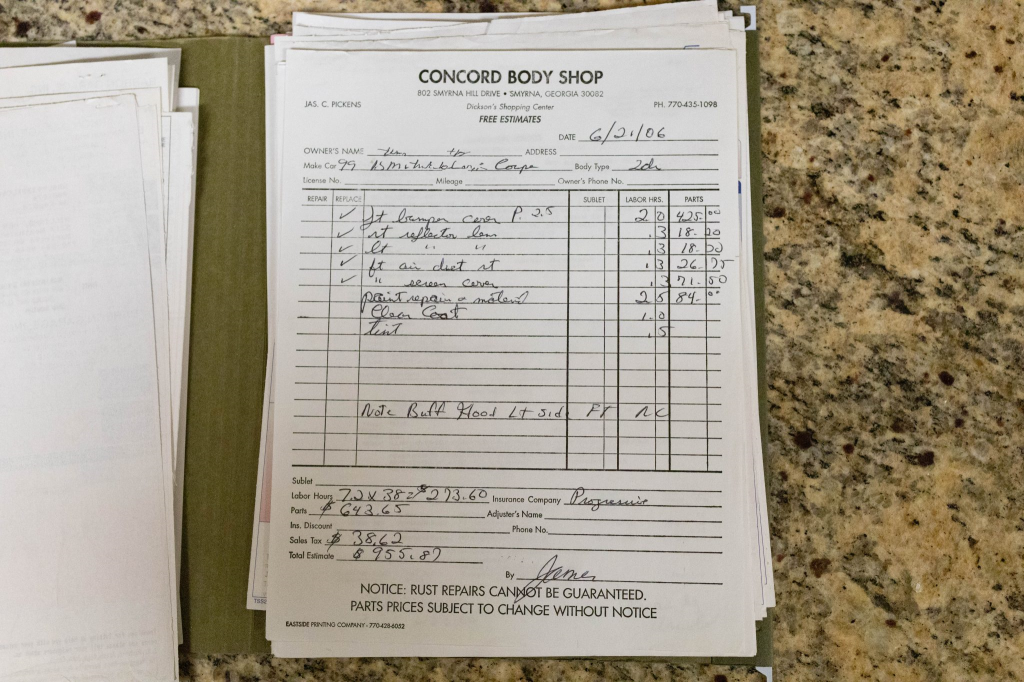 CONCORD BODY SHOP
802 SMYRNA HILL DRIVE • SMYRNA, GEORGIA 30082
JAS. C. PICKENS Dickson's Shopping Center PH. 770-435-1098
FREE ESTIMATES
DATE 6/21/06
OWNER'S NAME ADDRESS
Make Car 99 Coupe Body Type 2dr
License No. Mileage Owner's Phone No.
REPAIR REPLACE SUBLET LABOR HRS. PARTS
✓ ft bumper cover P. 2.5 2 0 425.00
✓ rt reflector lens .3 18.20
✓ lt " " .3 18.20
✓ ft air duct rt .3 26.75
✓ " screen cover .3 71.50
paint repair & material 2 5 84.00
Clear Coat 1.0
tint .5
Note Buff Hood Lt Side Ft NC
Sublet
Labor Hours 7.2 x 38 = $273.60 Insurance Company Progressive
Parts $643.65 Adjuster's Name
Ins. Discount Phone No.
Sales Tax $38.62
Total Estimate $955.87
By James
NOTICE: RUST REPAIRS CANNOT BE GUARANTEED.
PARTS PRICES SUBJECT TO CHANGE WITHOUT NOTICE
EASTSIDE PRINTING COMPANY - 770-428-6052